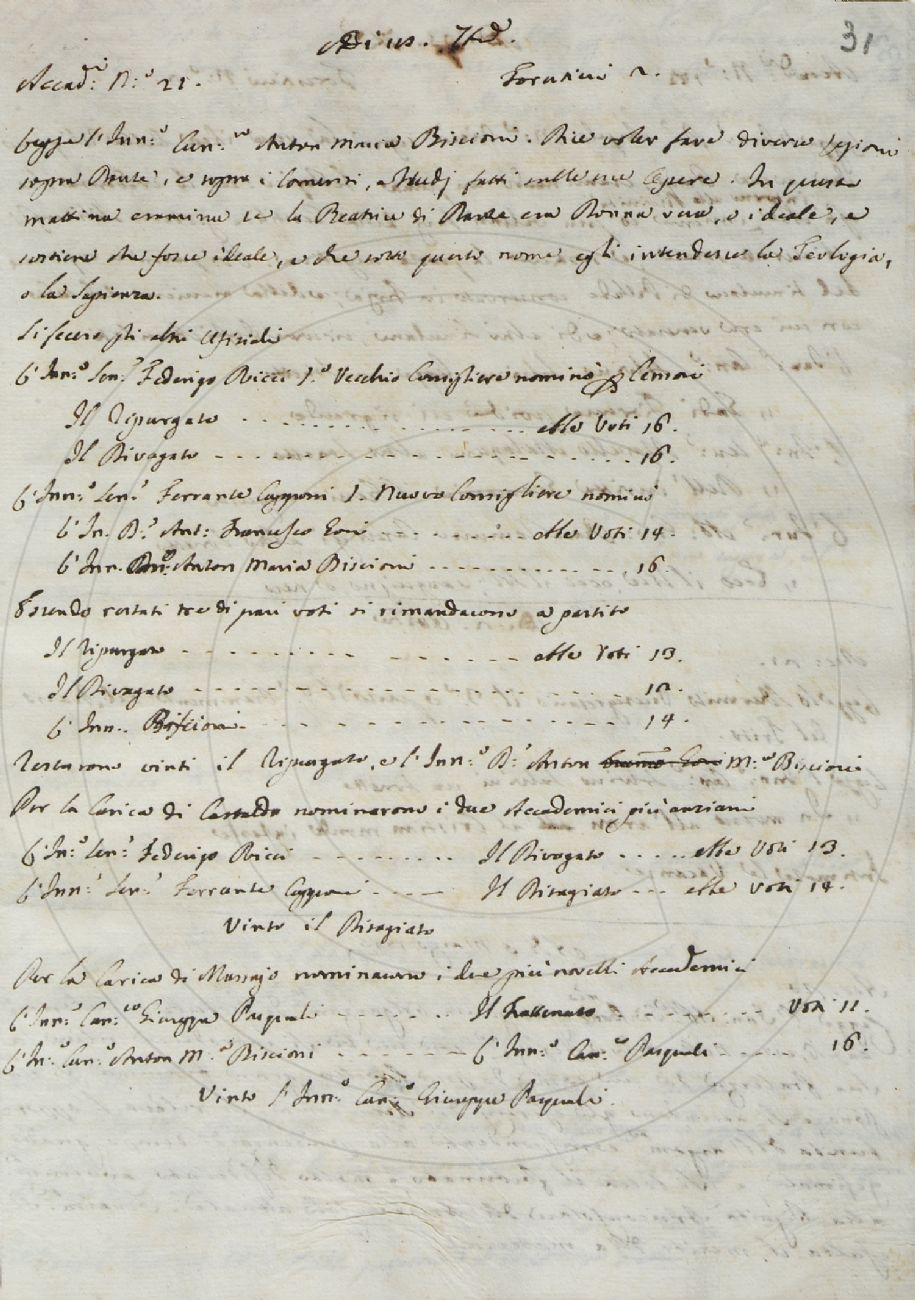 Adì us. Xd.
31
Accad.i N.o 21.
Forestieri 2.
Legge l'Inn.o Can.co Anton Maria Biscioni. Dice voler fare diverse Lezioni
sopra Dante, e sopra i Comenti, e Studj fatti sulle sue Opere. In questa
mattina esamina se la Beatrice di Dante era Donna vera, o ideale, e
sostiene che fosse ideale, e che sotto questo nome egli intendesse la Teologia,
o la Sapienza.
Si fecero gli altri Ufiziali
L'Inn.o Sen.r Federigo Ricci 1.o Vecchio Consigliere nominò p Censori
Il Ripurgato - - - - - - - - - - ebbe Voti 16.
Il Rivogato - - - - - - - - - - 16.
L'Inn.o Sen.r Ferrante Capponi 1. Nuovo Consigliere nominò
L'In. D.r Ant. Francesco Gori - - - - - - ebbe Voti 14.
L'Inn. Anton Maria Biscioni - - - - - - - 16.
Essendo restati tre di pari voti si rimandarono a partito
Il Ripurgato - - - - - - - - ebbe Voti 13.
Il Rivogato - - - - - - - - - - 12.
L'Inn. Biscioni - - - - - - - - - - 14.
Restarono vinti il Ripurgato, e l'Inn.o D.r Anton M.a Biscioni
Per la Carica di Castaldo nominarono i due Accademici più anziani
L'In.o Sen.r Federigo Ricci - - - - - - Il Rivogato - - - - ebbe Voti 13.
L'Inn.o Sen.r Ferrante Capponi - - - - Il Ristagiato - - - ebbe voti 14.
Vinto il Ristagiato
Per la Carica di Massajo nominarono i due più novelli Accademici
L'Inn.o Can.co Giuseppe Pasquali - - - - - - Il - - - - - - Voti 11.
L'In.o Can.o Anton M.a Biscioni - - - - - - L'Inn.o Can.o Pasquali - - - - 16.
Vinto l'Inn.o Can.o Giuseppe Pasquali.